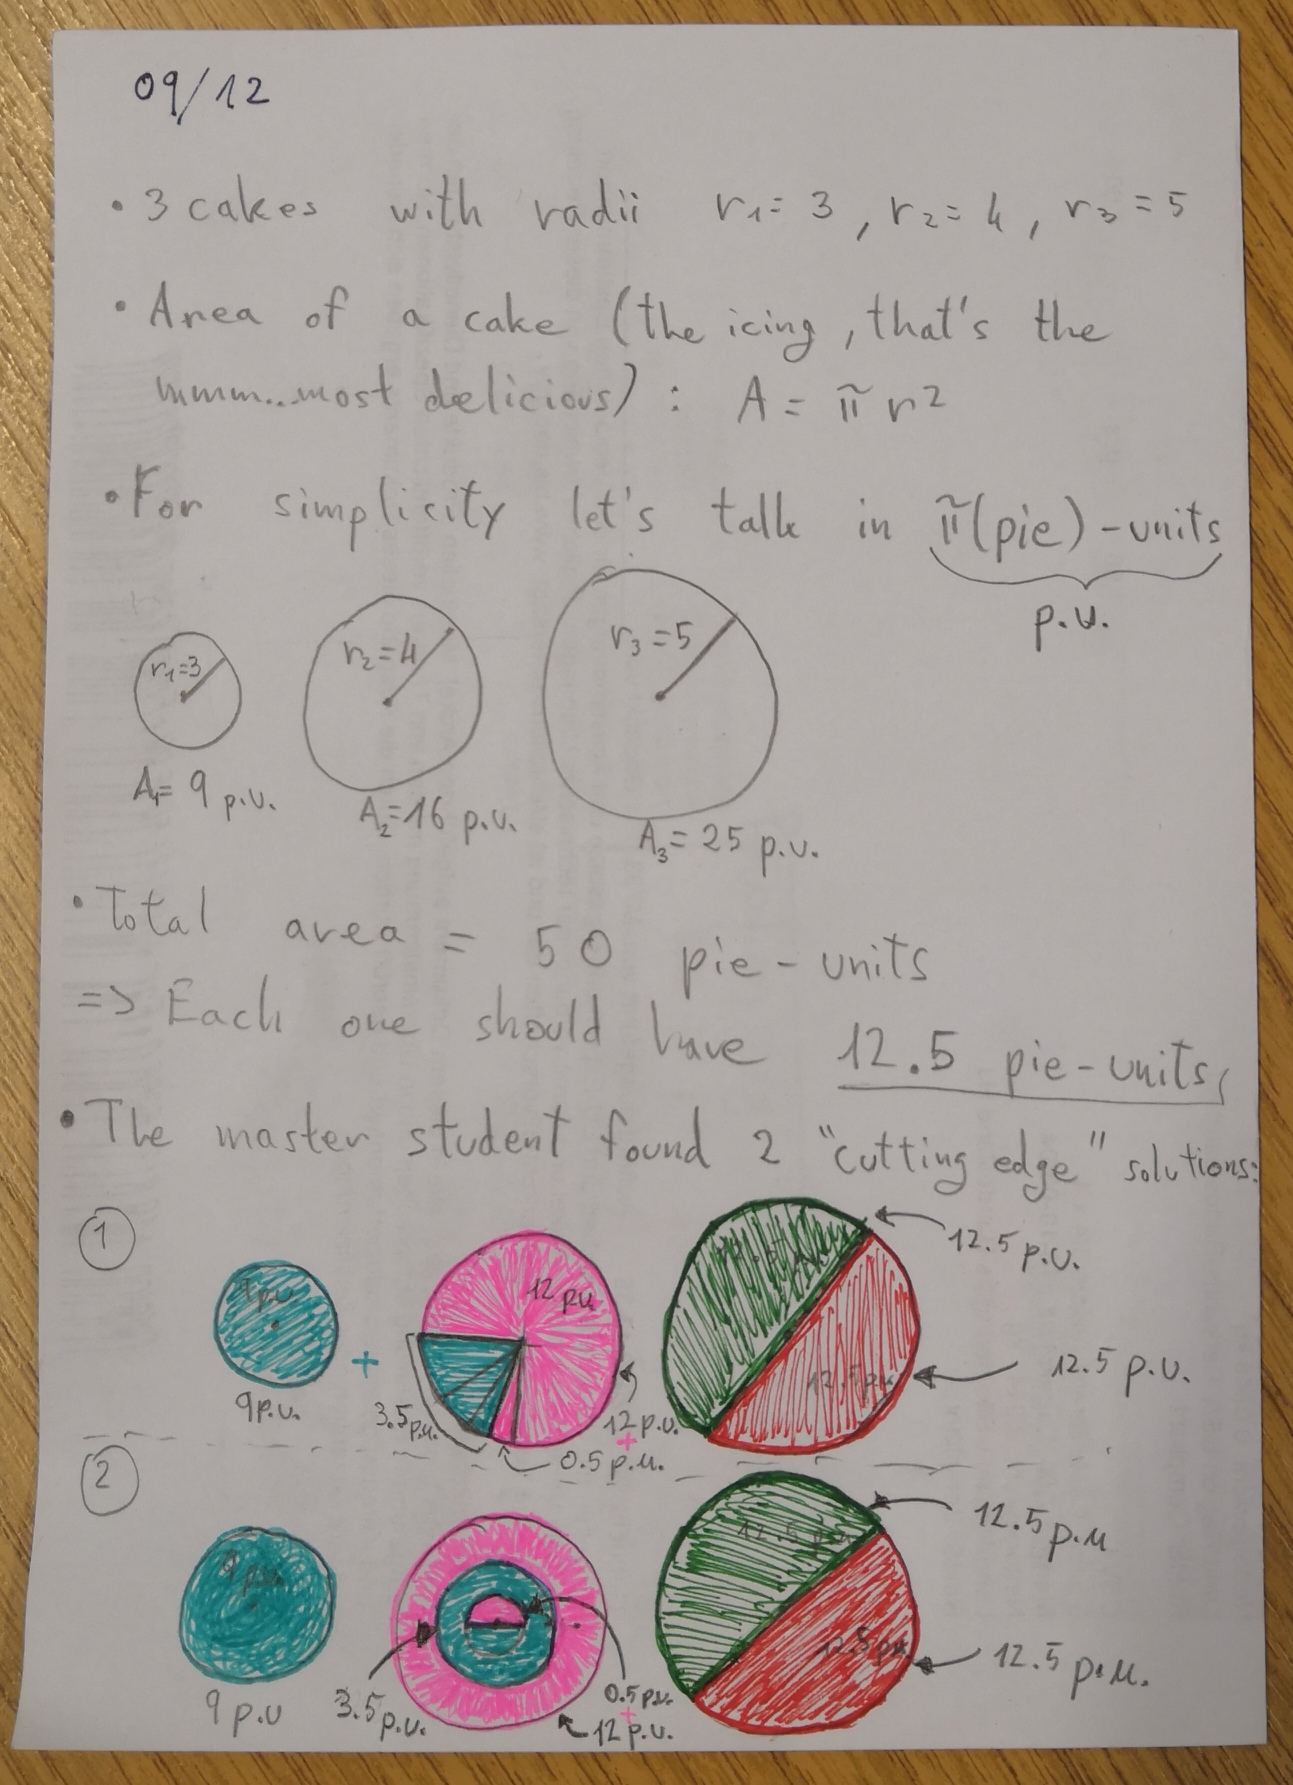 09/12
• 3 cakes with radii r₁=3, r₂=4, r₃=5
• Area of a cake (the icing, that's the
mmm..most delicious): A = πr²
• For simplicity let's talk in π(pie)-units
p.u.
r₁=3
r₂=4
r₃=5
A₁= 9 p.u.
A₂=16 p.u.
A₃= 25 p.u.
• Total area = 50 pie-units
=> Each one should have 12.5 pie-units,
• The master student found 2 "cutting edge" solutions:
①
9pu
9p.u.
+
12 pu
3.5p.u.
12 p.u.
+
0.5 p.u.
12.5 p.u.
12.5 pu
12.5 p.u.
②
9 p.u
3.5 p.u.
0.5 p.u.
+
12 p.u.
12.5 pu
12.5 p.u
12.5 pu
12.5 p.u.